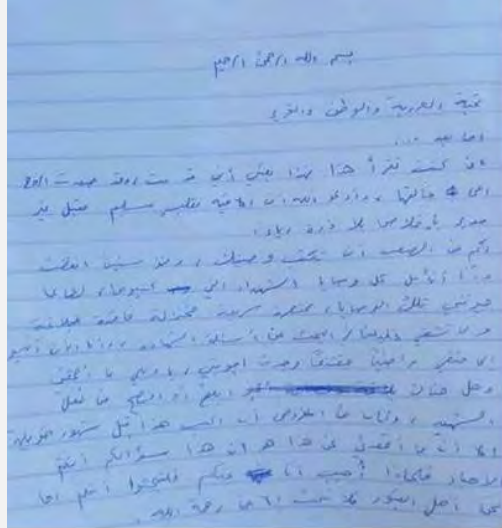 بسم الله الرحمن الرحيم
تحية العروبة والوطن والتحرير
أما بعد ...
إن كنت تقرأ هذا فهذا يعني أني قد مت وقد صعدت الروح
إلى خالقها، وأدعو الله أن ألاقيه بقلب سليم مقبل غير
مدبر بإخلاص بلا ذرة رياء.
لكم من الصعب أن تكتب وصيتك، ومنذ سنين انقضت
وأنا أتأمل كل وصايا الشهداء التي كتبوها، لطالما
حيرتني تلك الوصايا، مختصرة سريعة مختزلة فاقدة للبلاغة
ولا تشفي غليلنا في البحث عن أسئلة الشهادة، وأنا الآن أسير
إلى حتفي راضياً مقتنعاً وجدت أجوبتي، يا ويلي ما أحمقني
وهل هناك أبلغ أو أفصح من فعل
الشهيد، وكان من المفروض أن أكتب هذا قبل شهور طويلة
إلا أن ما أقعدني عن هذا هو أن هذا سؤالكم أنتم
الأحياء فلماذا أجيب أنا عنكم فلتبحثوا أنتم أما
نحن أهل القبور فلا نبحث إلا عن رحمة الله.